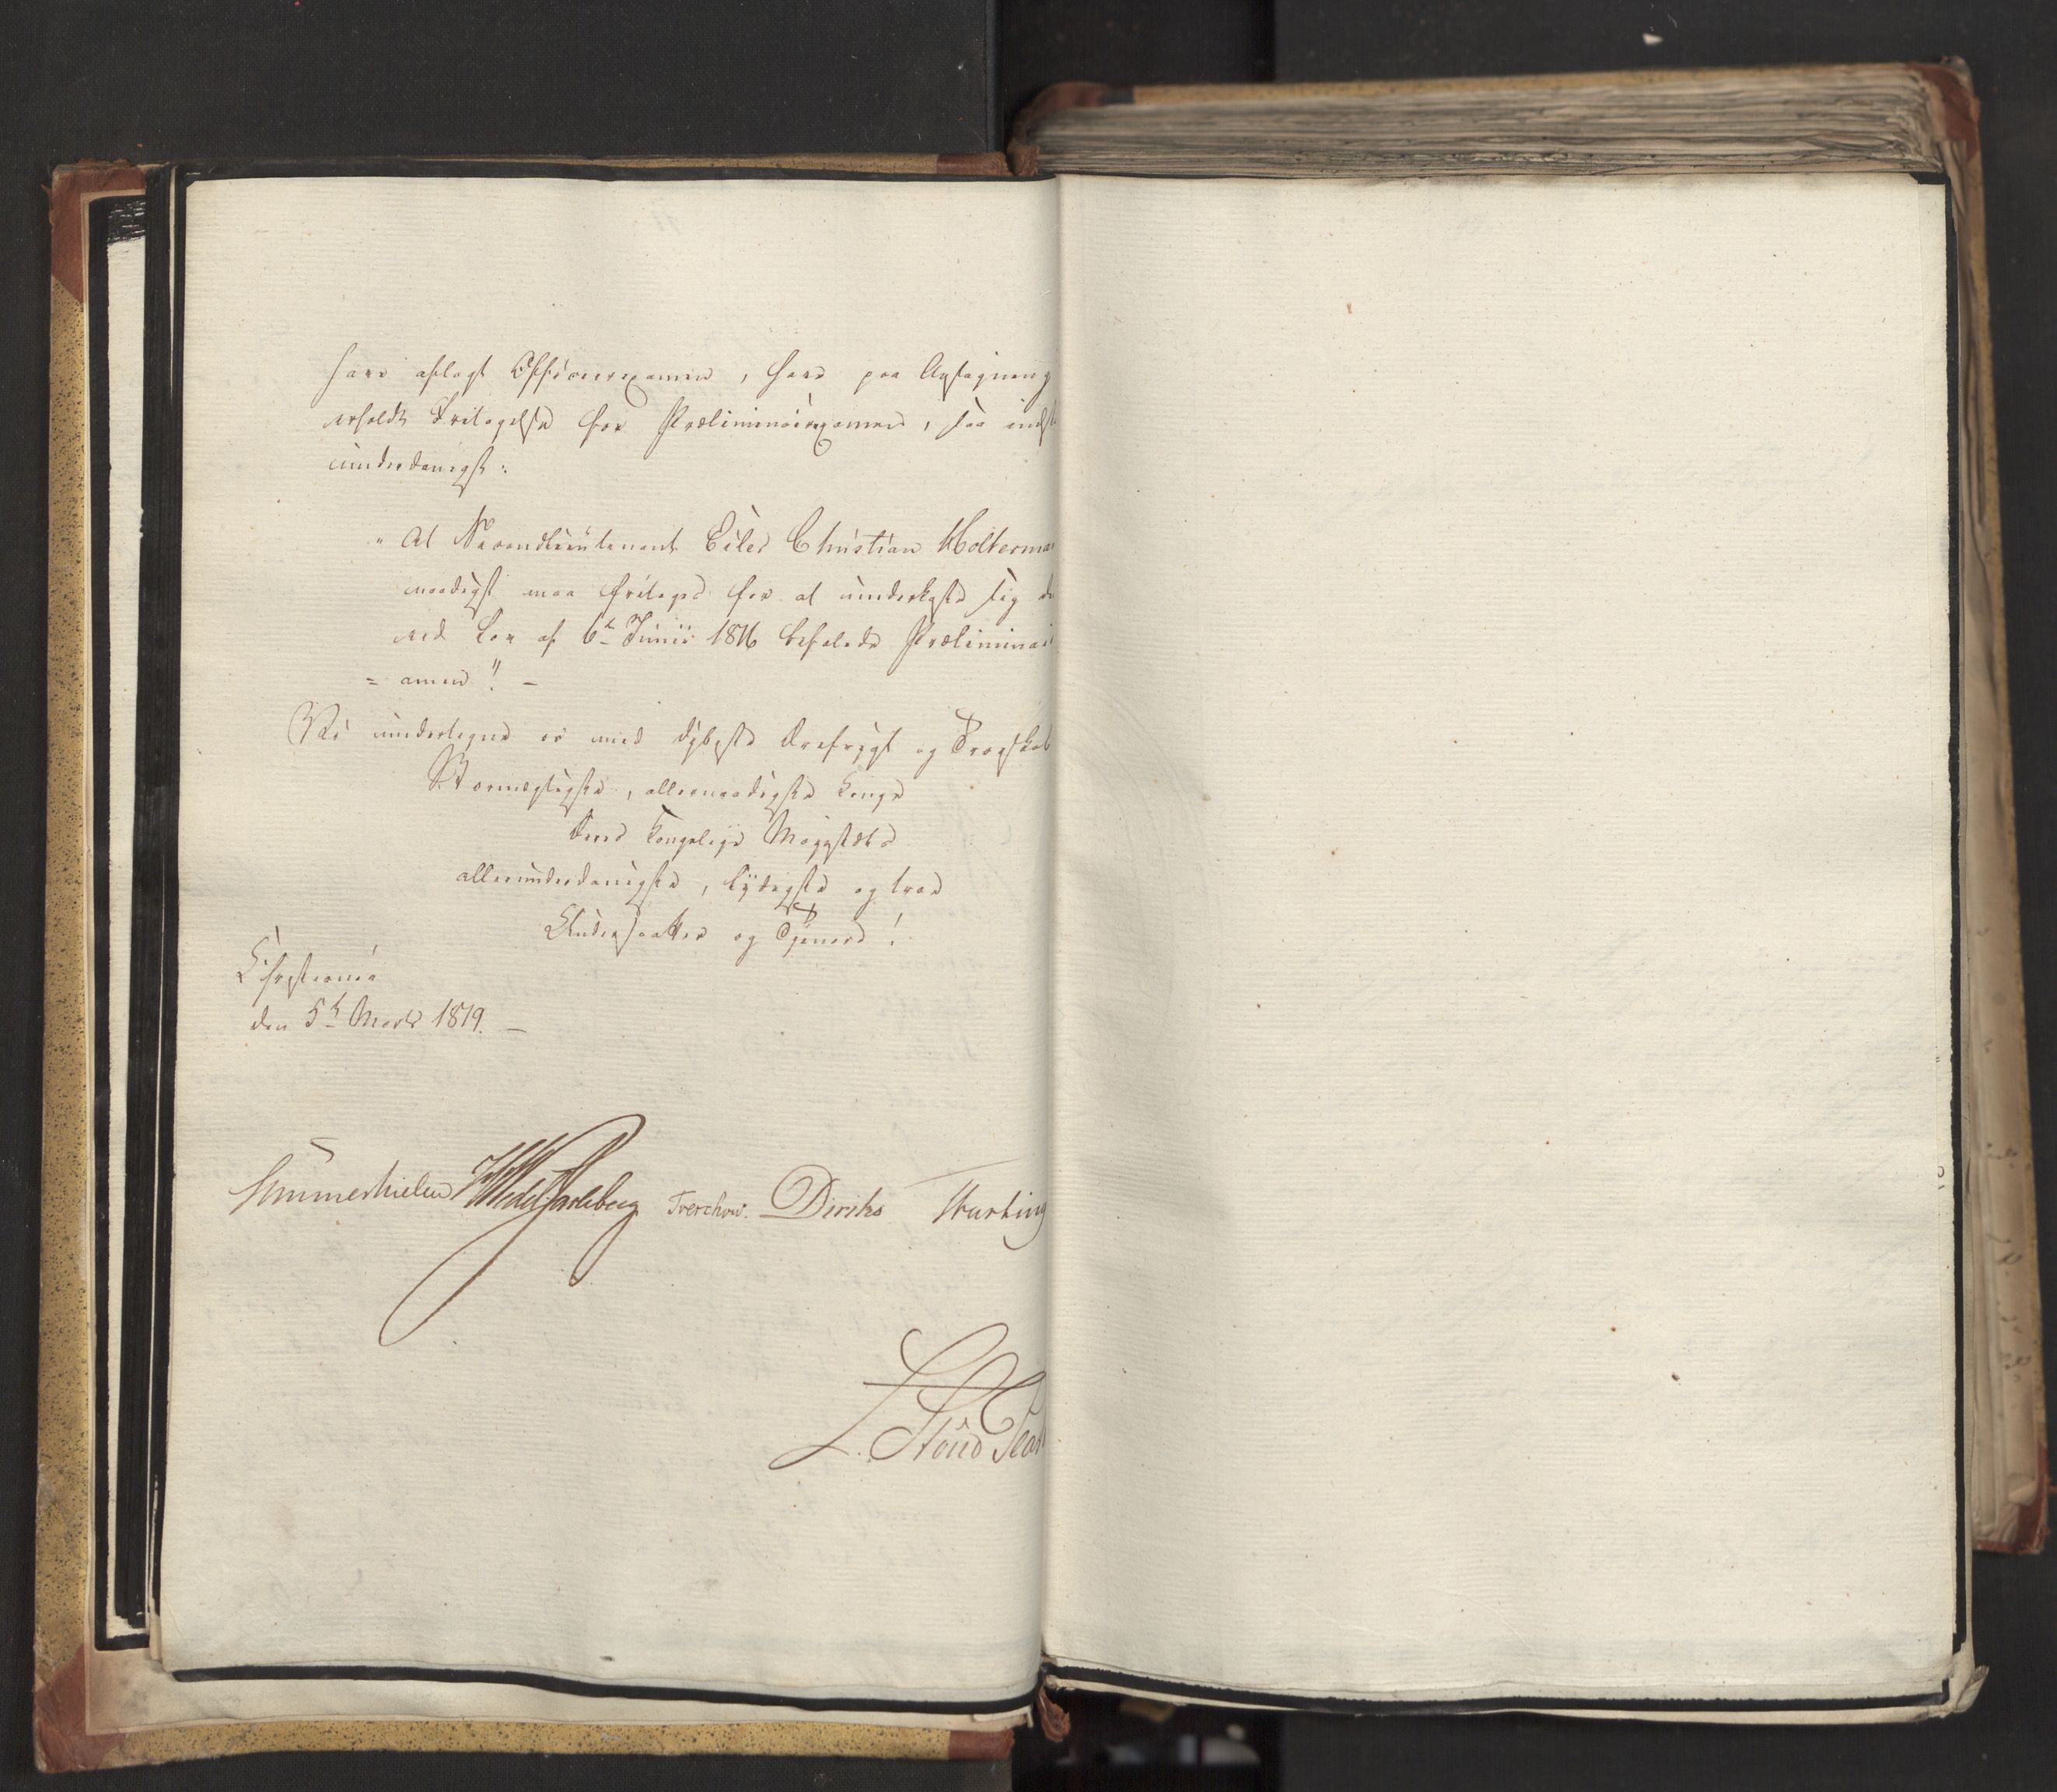 have aflagt Officeerexamen, have paa Ansøgning
erholdt Fritagelse for Præliminairexamen, saa indst
underdanigst:
" At Secondlieutenant Eiler Christian Holterma
naadigst maa fritages for at underkaste sig de
ved Lov af 6te Junii 1816 befalede Præliminai
= amen"! -
Vi undertegne os med dybeste Ærefrygt og Troeskab
Stormægtigste, allernaadigste Konge
Deres Kongelige Majestæts
allerunderdanigste, lydigste og troe
Undersaatter og Tjenere!
Christiania
den 5te Marts 1819. -
Sommerhielm HWedel Jarlsberg Treschow. Diriks
L. Stoud